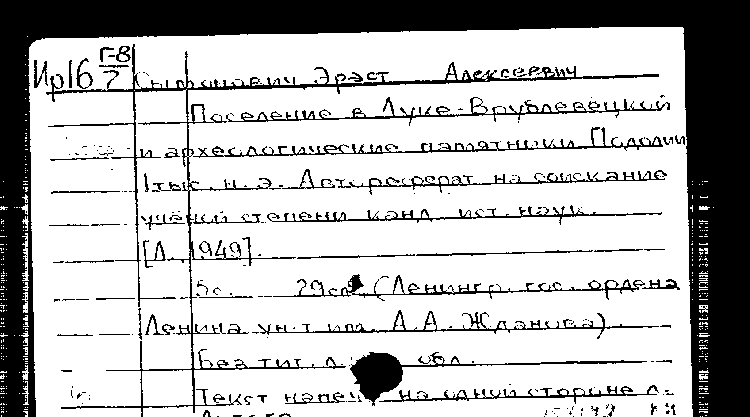 Ир16 Г-В/7 Сымонович, Эраст Алексеевич
Поселение в Луке-Врублевецкой
и археологические памятники Подолии
I тыс. н. э. Автореферат на соискание
учёной степени канд. ист. наук.
[Л. 1949].
5с. 29см (Ленингр. гос. ордена
Ленина ун-т им. А. А. Жданова).
Без тит. л. обл.
Текст напеч. на одной стороне л.